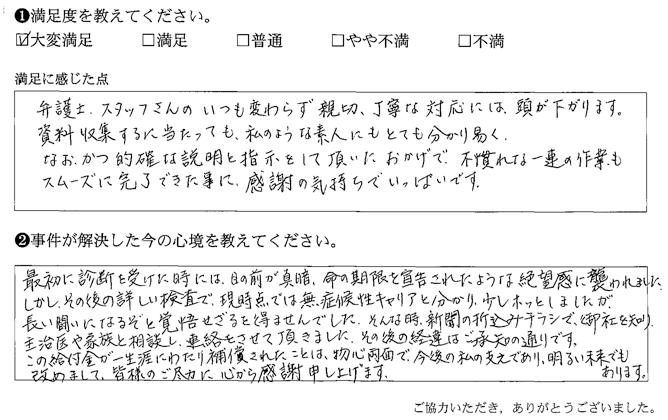 ❶満足度を教えてください。
☑大変満足 □満足 □普通 □やや不満 □不満
満足に感じた点
弁護士、スタッフさんの いつも変わらず親切、丁寧な対応には、頭が下がります。
資料収集するに当たっても、私のような素人にもとても分かり易く、
なお、かつ的確な説明と指示をして頂いた おかげで、不慣れな一連の作業も
スムーズに完了できた事に、感謝の気持ちでいっぱいです。
❷事件が解決した今の心境を教えてください。
最初に診断を受けた時には、目の前が真暗、命の期限を宣告されたような絶望感に襲われました。
しかし、その後の詳しい検査で、現時点では無症候性キャリアと分かり、少しホッとしましたが、
長い闘いになるぞと覚悟せざるを得ませんでした。そんな時、新聞の折込みチラシで、御社を知り、
主治医や家族と相談し、連絡をさせて頂きました。その後の経過はご承知の通りです。
この給付金が一生涯にわたり補償されたことは、物心両面で、今後の私の支えであり、明るい未来でも
あります。
改めまして、皆様のご尽力に心から感謝申し上げます。
ご協力いただき，ありがとうございました。